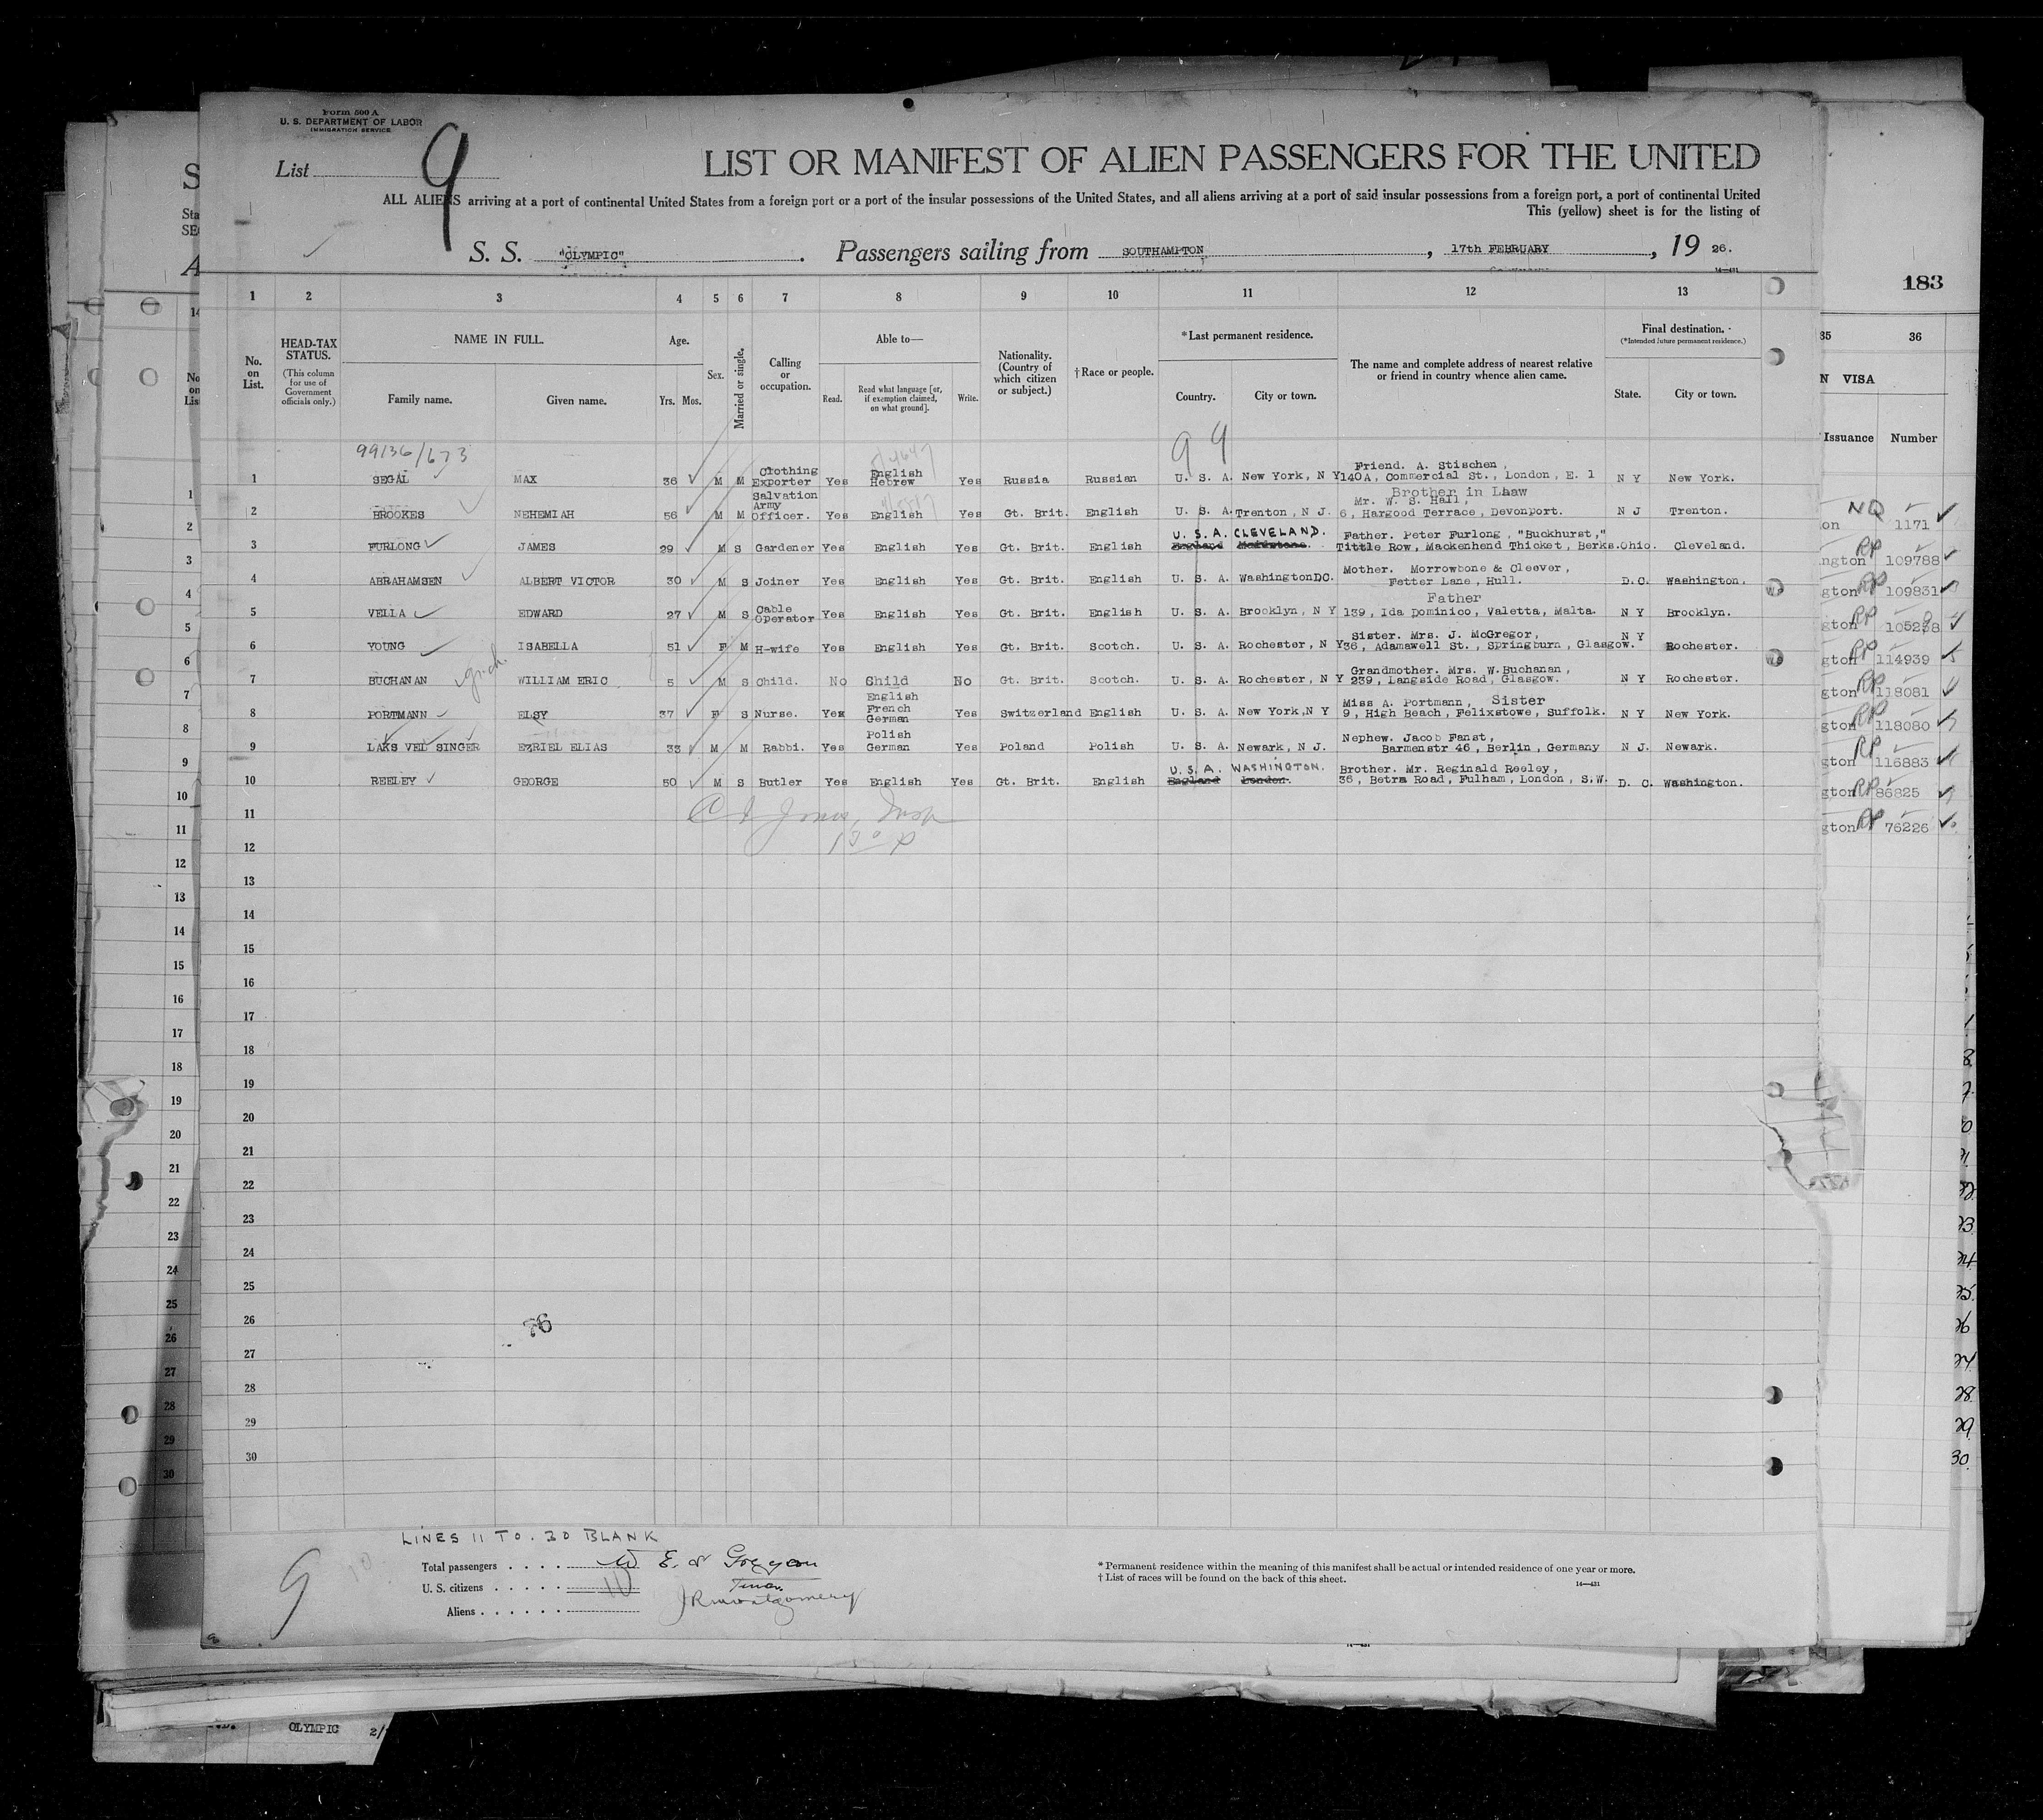 Form 500 A
U. S. DEPARTMENT OF LABOR
IMMIGRATION SERVICE
List 9
LIST OR MANIFEST OF ALIEN PASSENGERS FOR THE UNITED
ALL ALIENS arriving at a port of continental United States from a foreign port or a port of the insular possessions of the United States, and all aliens arriving at a port of said insular possessions from a foreign port, a port of continental United
This (yellow) sheet is for the listing of
S. S. "OLYMPIC". Passengers sailing from SOUTHAMPTON, 17th FEBRUARY, 19 26.
14—431
183
1 2 3 4 5 6 7 8 9 10 11 12 13
35 36
No. on List.
HEAD-TAX STATUS.
(This column for use of Government officials only.)
NAME IN FULL.
Family name. Given name.
Age.
Yrs. Mos.
Sex.
Married or single.
Calling or occupation.
Able to—
Read. Read what language [or, if exemption claimed, on what ground]. Write.
Nationality. (Country of which citizen or subject.)
†Race or people.
*Last permanent residence.
Country. City or town.
The name and complete address of nearest relative or friend in country whence alien came.
Final destination.
(*Intended future permanent residence.)
State. City or town.
N VISA
Issuance Number
99136/673
99
1 SEGAL MAX 36 M M Clothing Exporter Yes English Hebrew Yes Russia Russian U. S. A. New York, N Y Friend. A. Stischen, 140A, Commercial St., London, E. 1 N Y New York.
2 BROOKES NEHEMIAH 56 M M Salvation Army Officer. Yes English Yes Gt. Brit. English U. S. A. Trenton, N J. Brother in Laaw Mr. W. S. Hall, 6, Hargood Terrace, Devonport. N J Trenton.
3 FURLONG JAMES 29 M S Gardener Yes English Yes Gt. Brit. English U. S. A. CLEVELAND. England Maidstone. Father. Peter Furlong, "Buckhurst," Tittle Row, Mackenhend Thicket, Berks. Ohio. Cleveland.
4 ABRAHAMSEN ALBERT VICTOR 30 M S Joiner Yes English Yes Gt. Brit. English U. S. A. Washington DC. Mother. Morrowbone & Cleever, Fetter Lane, Hull. D.C. Washington.
5 VELLA EDWARD 27 M S Cable Operator Yes English Yes Gt. Brit. English U. S. A. Brooklyn, N Y Father 139, Ida Dominico, Valetta, Malta. N Y Brooklyn.
6 YOUNG ISABELLA 51 F M H-wife Yes English Yes Gt. Brit. Scotch. U. S. A. Rochester, N Y Sister. Mrs. J. McGregor, 36, Adamawell St., Springburn, Glasgow. N Y Rochester.
7 BUCHANAN WILLIAM ERIC 5 M S Child. No Child No Gt. Brit. Scotch. U. S. A. Rochester, N Y Grandmother. Mrs. W. Buchanan, 239, Langside Road, Glasgow. N Y Rochester.
8 PORTMANN ELSY 37 F S Nurse. Yes English French German Yes Switzerland English U. S. A. New York, N Y Miss A. Portmann, Sister 9, High Beach, Felixstowe, Suffolk. N Y New York.
9 LAKS VEL SINGER EZRIEL ELIAS 33 M M Rabbi. Yes Polish German Yes Poland Polish U. S. A. Newark, N J. Nephew. Jacob Fanst, Barmenstr 46, Berlin, Germany N J. Newark.
10 REELEY GEORGE 50 M S Butler Yes English Yes Gt. Brit. English U. S. A. WASHINGTON. England London. Brother. Mr. Reginald Reeley, 36, Betra Road, Fulham, London, S.W. D. C. Washington.
on NQ 1171
ngton RP 109788
gton RP 109831
gton RP 105238
gton RP 114939
gton RP 118081
gton RP 118080
gton RP 116883
gton RP 86825
gton RP 76226
11
12
13
14
15
16
17
18
19
20
21
22
23
24
25
26
27
28
29
30
76
LINES 11 TO. 30 BLANK
Total passengers
U. S. citizens
Aliens
9
J R Montgomery
* Permanent residence within the meaning of this manifest shall be actual or intended residence of one year or more.
† List of races will be found on the back of this sheet.
14—431
OLYMPIC 2/